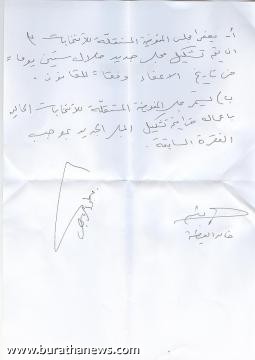 أ- يعفى مجلس المفوضية المستقلة للانتخابات
تشكيل مجلس جديد خلال ستين يوماً
من تاريخ الاعفاء وفقاً للقانون.
ب) يستمر مجلس المفوضية المستقلة للانتخابات الحالي
باعماله تشكيل المجلس الجديد بموجب
الفقرة السابقة.
خالد العطية
www.burathanews.com